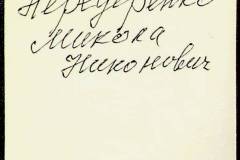 Передеренко
Микола
Никонович